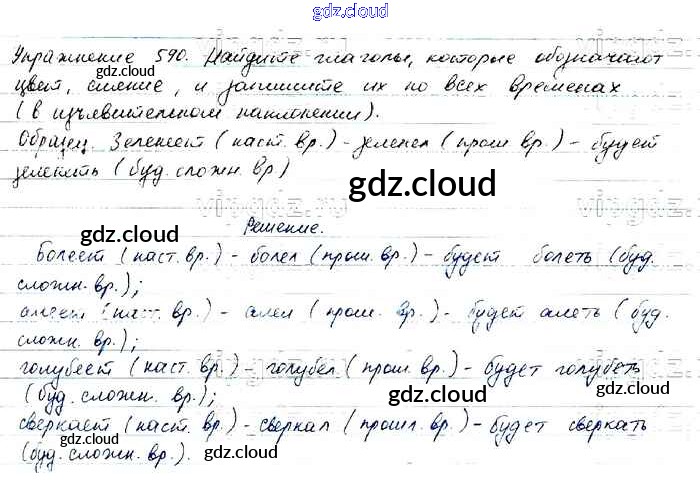 gdz.cloud
Упражнение 590. Найдите глаголы, которые обозначают
цвет, сияние, и запишите их во всех временах
(в изъявительном наклонении).
Образец. Зеленеет (наст. вр.) - зеленел (прош вр.) - будет
зеленеть (буд. сложн. вр)
gdz.cloud
gdz.cloud
Решение.
gdz.cloud
Болеет (наст. вр.) - болел (прош. вр.) - будет болеть (буд.
сложн. вр.);
алеет (наст. вр.) - алел (прош. вр.) - будет алеть (буд.
сложн. вр.);
gdz.cloud
gdz.cloud
голубеет (наст. вр.) - голубел (прош вр.) - будет голубеть
(буд. сложн. вр.);
gdz.cloud
сверкает (наст. вр.) - сверкал (прошл. вр.) - будет сверкать
(буд. сложн. вр.).
gdz.cloud
gdz.cloud